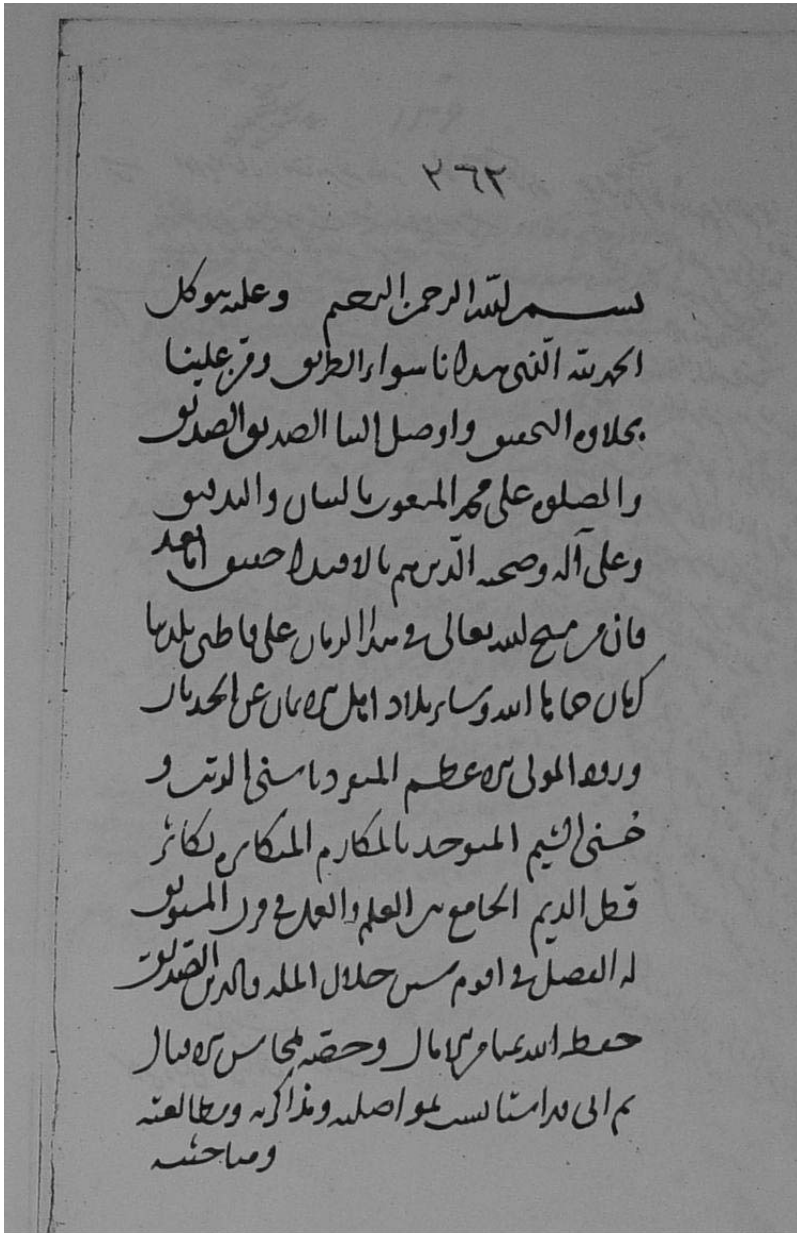 ٣٦٢
بسم الله الرحمن الرحيم وعليه توكلى
الحمد لله الذى هدانا سواء الطريق وقرع علينا
بحلاوة التحقيق واوصل الينا الصديق الصديق
والصلوة على محمد المبعوث بالبيان والتدقيق
وعلى آله وصحبه الذين هم بالاقتدا حقيق اما بعد
فان من منح الله تعالى فى هذا الزمان على قاطنى بلدتنا
كرمان حماها الله وسائر بلاد اهل الايمان عن الحدثان
ورود المولى الاعظم المتفرد باسنى الرتب و
حسنى الشيم المتوحد بالمكارم المتكاثرة تكاثر
قطر الديم الجامع بين العلم والعمل فى قرن المستوثق
له الفضل فى اقوم سنن جلال الملة والدين الصديق
حفظه الله عما من الامال وخصه بمحاسن الاقبال
ثم انى قد استانست بمواصلته ومذاكرته ومطالعته
ومباحثته